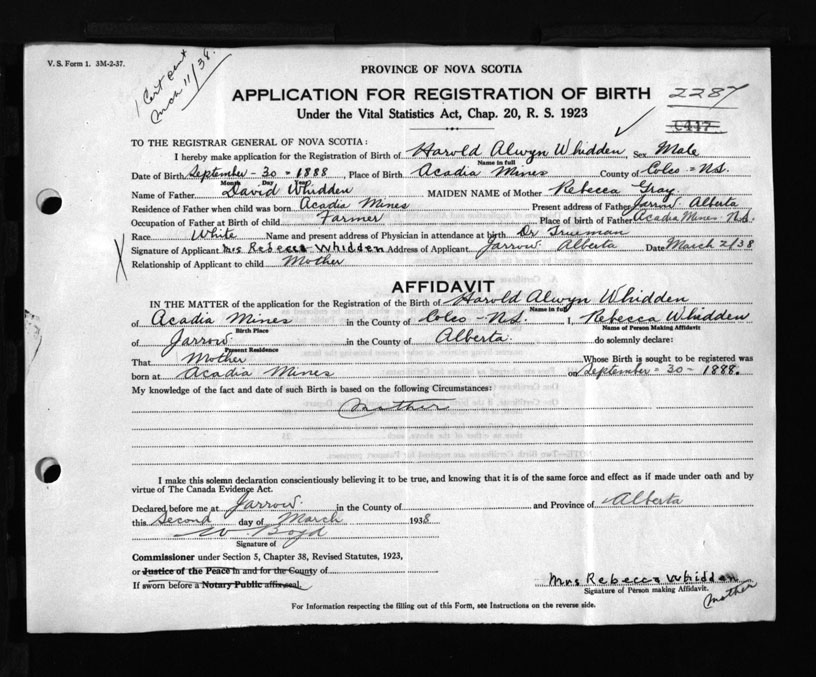 V. S. Form 1. 3M-2-37.
1 Cert sent
Mch 11/38.
PROVINCE OF NOVA SCOTIA
APPLICATION FOR REGISTRATION OF BIRTH 2287
Under the Vital Statistics Act, Chap. 20, R. S. 1923
TO THE REGISTRAR GENERAL OF NOVA SCOTIA:
I hereby make application for the Registration of Birth of Harold Alwyn Whidden Sex Male
Name in full
Date of Birth September - 30 - 1888, Place of Birth Acadia Mines County of Colco - N.S.
Month Day Year
Name of Father David Whidden MAIDEN NAME of Mother Rebecca Gray
Residence of Father when child was born Acadia Mines Present address of Father Jarrow Alberta
Occupation of Father at Birth of child Farmer Place of birth of Father Acadia Mines N.S.
Race White Name and present address of Physician in attendance at birth Dr Trueman
Signature of Applicant Mrs Rebecca Whidden Address of Applicant Jarrow Alberta Date March 2/38
Relationship of Applicant to child Mother
AFFIDAVIT
IN THE MATTER of the application for the Registration of the Birth of Harold Alwyn Whidden
Name in full
of Acadia Mines in the County of Colco - N.S. I, Rebecca Whidden
Birth Place Name of Person Making Affidavit
of Jarrow in the County of Alberta do solemnly declare:
Present Residence
That Mother Whose Birth is sought to be registered was
born at Acadia Mines on September - 30 - 1888.
My knowledge of the fact and date of such Birth is based on the following Circumstances:
Mother
I make this solemn declaration conscientiously believing it to be true, and knowing that it is of the same force and effect as if made under oath and by
virtue of The Canada Evidence Act.
Declared before me at Jarrow in the County of and Province of Alberta
this Second day of March 1938
W Boyd
Signature of
Commissioner under Section 5, Chapter 38, Revised Statutes, 1923,
or Justice of the Peace in and for the County of
If sworn before a Notary Public affix seal.
Mrs Rebecca Whidden
Signature of Person making Affidavit.
Mother
For Information respecting the filling out of this Form, see Instructions on the reverse side.